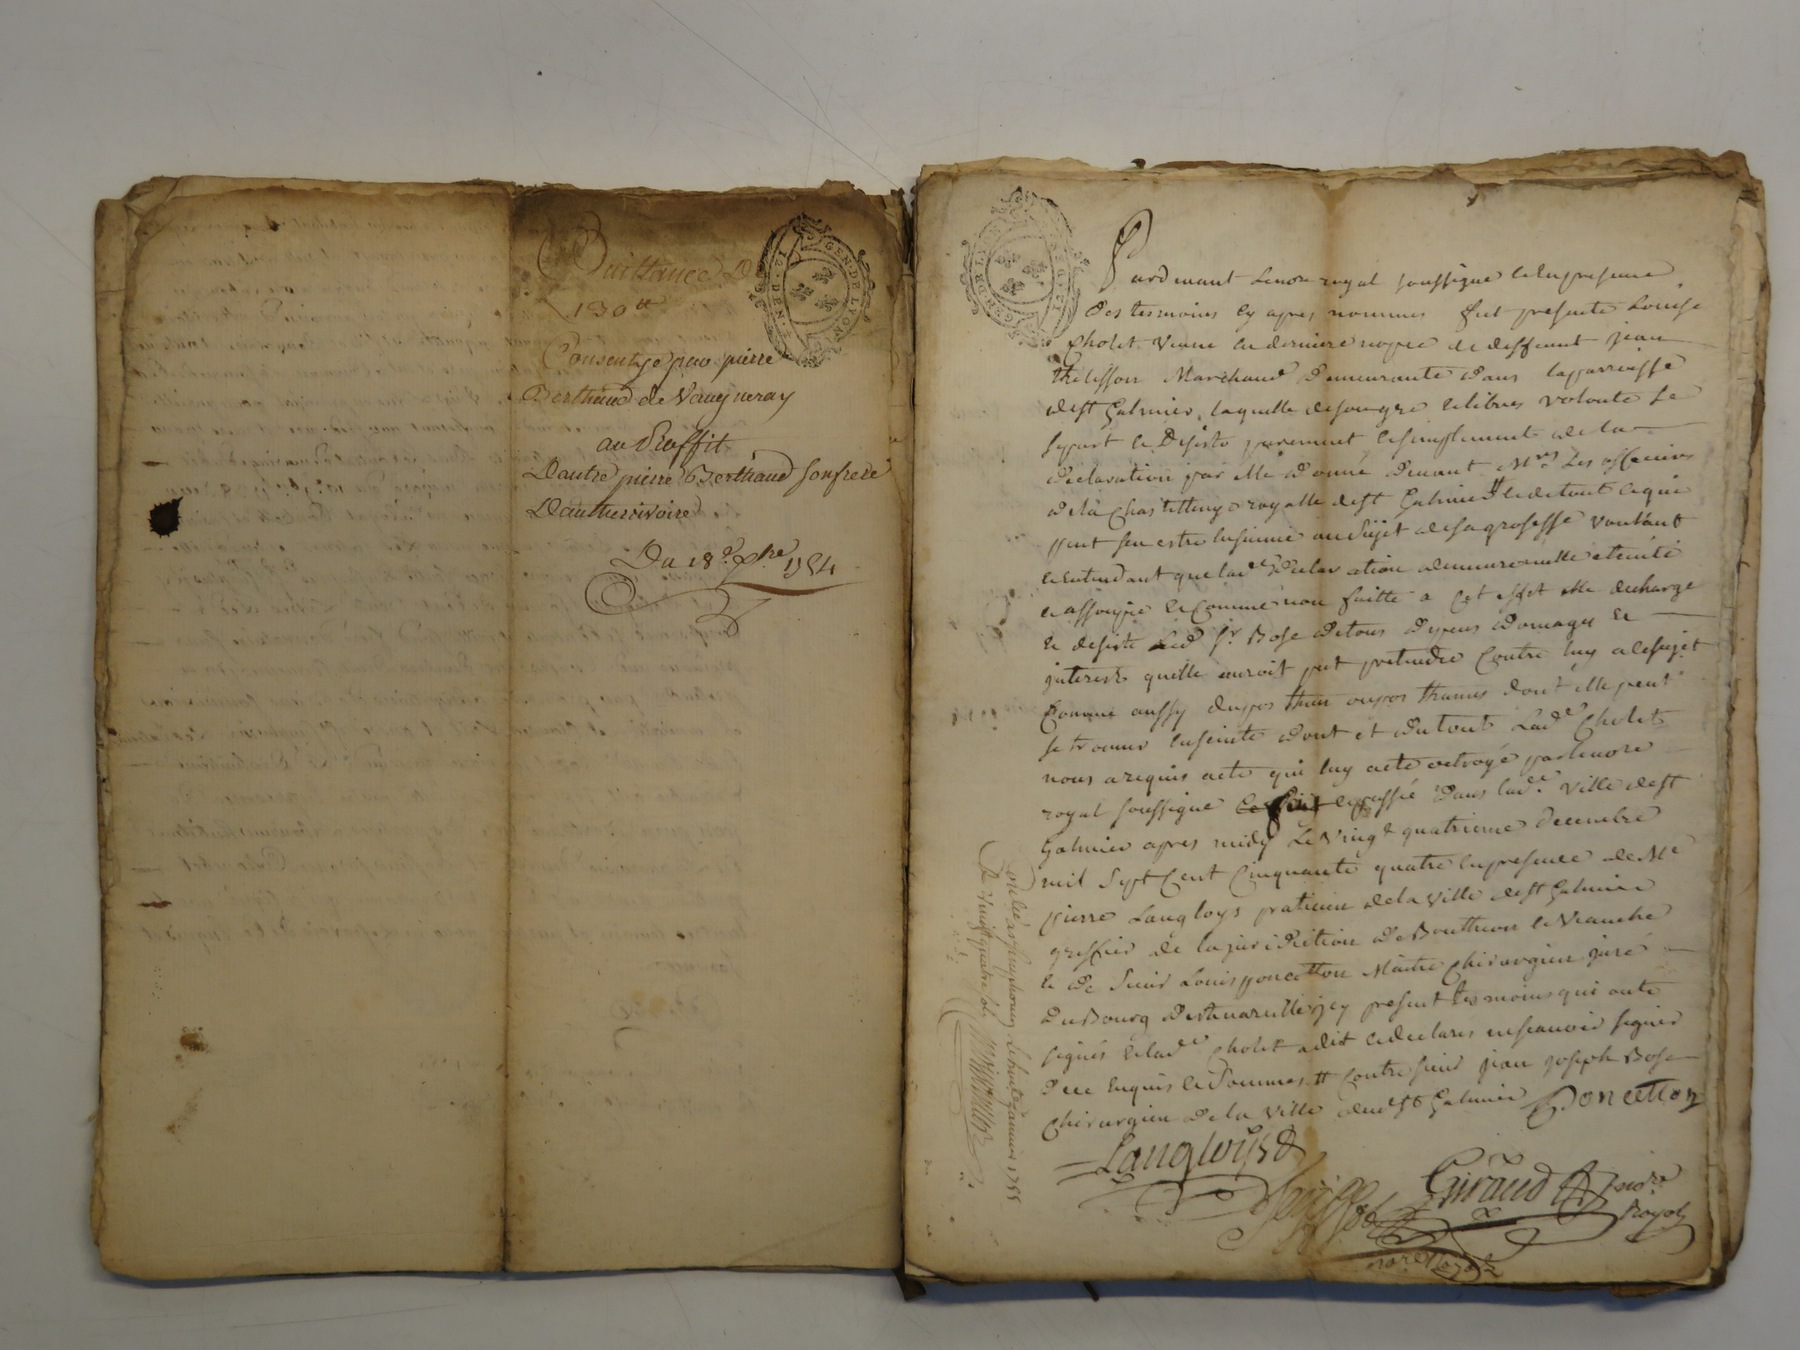 Quittance De
130 tt
Consentye par pierre
Berthaud de Vaugneray
au Proffit
Dautre pierre Berthaud son frere
Du 18e xbre 1754
GEN·DE LYON
Pardevant Lenore royal soussigné et en presence
des tesmoins cy apres nommés fut presente Louise
Cholet veuve en derniere nopce de deffunt jean
Thelisson Marchand demeurante dans la parroisse
de st Galmier, laquelle de son gre et libres volonté se
depart et Desiste purement et simplement de la
declaration par elle donné devant Mrs Les officiers
de la Chastellenye royalle de st Galmier tt et de tout ce qui
peut sen estre ensuivie au sujet de sa grosesse voulant
et entendant que lade Declaration demeure nulle eteinte
et assoupie et Comme non faitte a cet effet elle decharge
et desiste Led Sr Bose de tous depens domages et
interest quelle auroit put pretendre Contre luy a ce sujet
Comme aussy du
dont elle peut
se trouver enseinte dont et du tout Lade Cholet
nous a requis acte qui luy a ete octroyé par le nore
royal soussigné et passé dans lade ville de st
Galmier apres midy Le vingt quatrieme decembre
mil Sept Cent Cinquante quatre en presence de Me
pierre Langloys praticien de la ville de st Galmier
greffier de la juridiction de Boutheon et Veauche
et de Sieur Louis poncetton Maitre chirurgien juré
du Bourg
tesmoins qui ont
signés et lade Cholet a dit et declarer ne scavoir signer
de ce Enquis et Sommés tt contre sieur jean joseph Bose
chirurgien de la ville dud st Galmier Poncetton
Langloys
Giraud nore
Royal
nore Royal
janvier 1755
vingt quatre sols